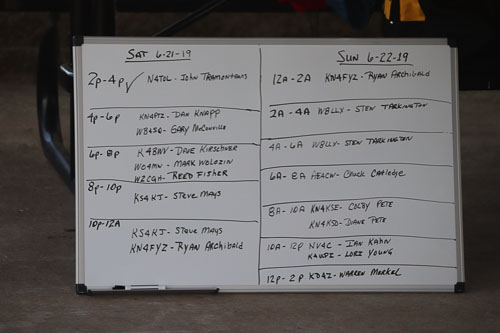 SAT 6-21-19
2p-4p ✓ N4TOL - John Tramontanis
4p-6p KN4PTZ - DAN KNAPP
W84SQ - GARY McConville
6p-8p K4BWV - DAVE KIRSCHNER
WO4MN - MARK WOLOZIN
W2CQH - REED FISHER
8p-10p KS4KJ - STEVE MAYS
10p-12A
KS4KJ - STEVE MAYS
KN4FYZ - RYAN ARChibald
SUN 6-22-19
12A-2A KN4FYZ - RYAN ARChibald
2A-4A W8LLY - STEW TARKINGTON
4A-6A W8LLY - STEW TARKINGTON
6A-8A AE4CW - Chuck Catledge
8A-10A KN4KSE - COLBY PETE
KN4KSD - DIANE PETE
10A-12p NV4C - IAN KAHN
LORI YOUNG
12p-2p KD4Z - WARREN Merkel